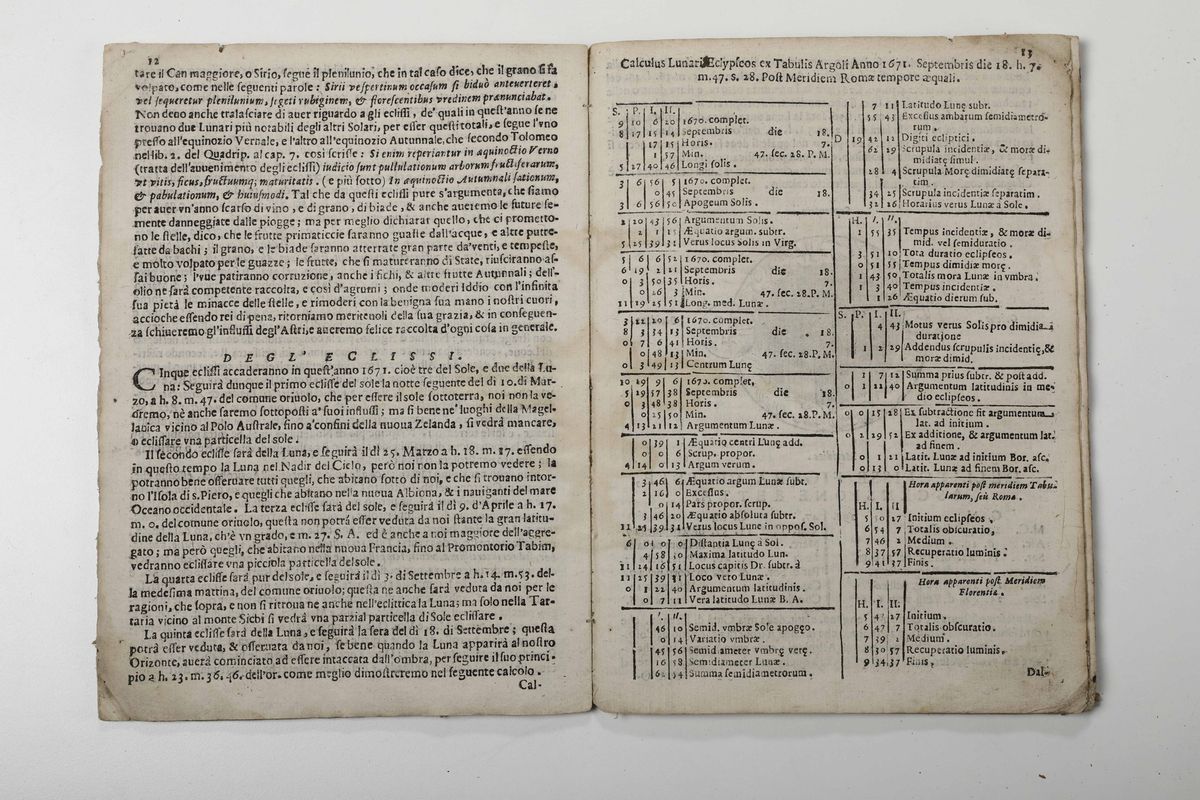 12
tare il Can maggiore, o Sirio, segue il plenilunio, che in tal caso dice, che il grano si fa
volpato, come nelle seguenti parole: Sirii vespertinum occasum si biduo anteverteret,
vel sequeretur plenilunium, segeti rubiginem, & florescentibus vredinem prænunciabat.
Non deno anche tralasciare di auer riguardo agli eclissi, de' quali in quest'anno ne
trouano due Lunari più notabili degli altri Solari, per esser questi totali, e segue l'vno
presso all'equinozio Vernale, e l'altro all'equinozio Autunnale, che secondo Tolomeo
nel lib. 2. del Quadrip. al cap. 7. così scrisse: Si enim reperiantur in æquinoctio Verno
(tratta dell'auuenimento degli eclissi) iudicio sunt pullulationum arborum fructiferarum,
vt vitis, ficus, fructuumq; maturitatis. (e più sotto) In æquinoctio Autumnali sationum,
& pabulationum, & huiusmodi. Tal che da questi eclissi pure s'argumenta, che siamo
per auer vn'anno scarso di vino, e di grano, di biade, & anche aueremo le future se-
mente danneggiate dalle piogge; ma per meglio dichiarar quello, che ci prometto-
no le stelle, dico, che le frutte primaticcie saranno guaste dall'acque, e altre putre-
fatte da bachi; il grano, e le biade saranno atterrate gran parte da' venti, e tempeste,
e molto volpato per le guazze; le frutte, che si matureranno di State, riusciranno as-
sai buone; l'vue patiranno corruzione, anche i fichi, & altre frutte Autunnali; dell'-
olio ne sarà competente raccolta, e così d'agrumi; onde moderi Iddio con l'infinita
sua pietà le minacce delle stelle, e rimoderi con la benigna sua mano i nostri cuori,
accioche essendo rei di pena, ritorniamo meriteuoli della sua grazia, & in conseguen-
za schiueremo gl'influssi degl'Astri, e aueremo felice raccolta d'ogni cosa in generale.
DEGL' ECLISSI.
CInque eclissi accaderanno in quest'anno 1671. cioè tre del Sole, e due della Lu-
na: Seguirà dunque il primo eclisse del sole la notte seguente del dì 10. di Mar-
zo, a h. 8. m. 47. del comune oriuolo, che per essere il sole sottoterra, noi non la ve-
dremo, nè anche saremo sottoposti a' suoi influssi; ma sì bene ne' luoghi della Magel-
lanica vicino al Polo Australe, fino a' confini della nuoua Zelanda, si vedrà mancare,
o eclissare vna particella del sole.
Il secondo eclisse sarà della Luna, e seguirà il dì 25. Marzo a h. 18. m. 17. essendo
in questo tempo la Luna nel Nadir del Cielo, però noi non la potremo vedere; la
potranno bene osseruare tutti quegli, che abitano sotto di noi, e che si trouano intor-
no l'Isola di s. Piero, e quegli che abitano nella nuoua Albiona, & i nauiganti del mare
Oceano occidentale. La terza eclisse sarà del sole, e seguirà il dì 9. d'Aprile a h. 17.
m. 0. del comune oriuolo, questa non potrà esser veduta da noi stante la gran latitu-
dine della Luna, ch'è vn grado, e m. 27. S. A. ed è anche a noi maggiore dell'aggre-
gato; ma però quegli, che abitano nella nuoua Francia, fino al Promontorio Tabim,
vedranno eclissare vna picciola particella del sole.
La quarta eclisse sarà pur del sole, e seguirà il dì 3. di Settembre a h. 14. m. 53. del-
la medesima mattina, del comune oriuolo; questa ne anche sarà veduta da noi per le
ragioni, che sopra, e non si ritroua ne anche nell'eclittica la Luna; ma solo nella Tar-
taria vicino al monte Sicbi si vedrà vna parzial particella di Sole eclissare.
La quinta eclisse sarà della Luna, e seguirà la sera del dì 18. di Settembre; questa
potrà esser veduta, & osseruata da noi, se bene quando la Luna apparirà al nostro
Orizonte, auerà cominciato ad essere intaccata dall'ombra, per seguire il suo princi-
pio a h. 23. m. 36. 46. dell'or. come meglio dimostreremo nel seguente calcolo.
Cal-
13
Calculus Lunaris Eclypseos ex Tabulis Argoli Anno 1671. Septembris die 18. h. 7.
m. 47. s. 28. Post Meridiem Romæ tempore æquali.
S. P. I. II.
9 10 6 20 1670. complet.
8 17 15 14 Septembris die 18.
17 15 Horis. 7.
1 57 Min. 47. sec. 28. P. M.
5 27 40 46 Longi solis.
3 6 56 5 1670. complet.
0 45 Septembris die 18.
3 6 56 50 Apogeum Solis.
2 20 43 56 Argumentum Solis.
2 1 15 Æquatio argum. subtr.
5 25 39 31 Verus locus Solis in Virg.
5 6 6 52 1670. complet.
6 19 2 21 Septembris die 18.
0 3 50 35 Horis. 7.
0 26 3 Min. 47. sec. 28. P. M.
11 19 25 51 Long. med. Lunæ.
3 22 20 6 1670. complet.
8 3 34 13 Septembris die 18.
0 7 6 41 Horis. 7.
0 48 13 Min. 47. sec. 28. P. M.
0 3 49 13 Centrum Lunę
10 19 9 6 1670. complet,
5 29 57 38 Septembris die 18.
0 3 48 38 Horis. 7.
0 25 50 Min. 47. sec. 28. P. M.
4 13 21 12 Argumentum Lunæ.
0 39 1 Æquatio centri Lunę add.
0 0 Scrup. propor.
4 14 0 13 Argum verum.
3 46 6 Æquatio argum Lunæ subt.
2 16 0 Excessus.
0 14 Pars propor. scrup.
3 46 20 Æquatio absoluta subtr.
11 25 39 31 Verus locus Lune in oppos. Sol.
6 0 0 0 Distantia Lunę à Sol.
4 58 10 Maxima latitudo Lun.
11 24 16 51 Locus capitis Dr. subtr. à
11 25 39 31 Loco vero Lunæ.
0 1 22 40 Argumentum latitudinis.
0 7 11 Vera latitudo Lunæ B. A.
I. II.
46 10 Semid. vmbræ Sole apogeo.
0 14 Variatio vmbræ.
45 56 Semid ameter vmbrę verę.
16 58 Semidiameter Lunæ.
62 54 Summa semidiametrorum.
7 11 Latitudo Lunę subtr.
55 43 Excessus ambarum semidiametro-
rum.
D 19 42 12 Digiti ecliptici.
62 29 Scrupula incidentiæ, & moræ di-
midiatę simul.
28 4 Scrupula Morę dimidiatę separa-
tim.
34 25 Scrupula incidentiæ separatim.
32 26 Horarius verus Lunæ à Sole.
H. I. II.
1 55 35 Tempus incidentiæ, & moræ di-
mid. vel semiduratio.
3 51 10 Tota duratio eclipseos.
0 51 55 Tempus dimidiæ morę.
1 43 50 Totalis mora Lunæ in vmbra.
1 3 40 Tempus incidentiæ.
1 26 Æquatio dierum sub.
S. P. I. II.
4 43 Motus verus Solis pro dimidia
duratione
1 2 29 Addendus scrupulis incidentię, &
moræ dimid.
1 7 12 Summa prius subtr. & post add.
0 1 22 40 Argumentum latitudinis in me-
dio eclipseos.
0 0 15 28 Ex subtractione fit argumentum
lat. ad initium.
0 2 29 52 Ex additione, & argumentum lat.
ad finem.
0 1 21 Latit. Lunæ ad initium Bor. asc.
0 13 0 Latit. Lunæ ad finem Bor. asc.
Hora apparenti post meridiem Tabu-
larum, seù Romæ.
H. I. II
5 50 27 Initium eclipseos,
6 54 7 Totalis obscuratio,
7 46 2 Medium.
8 37 57 Recuperatio luminis.
9 41 37 Finis.
Hora apparenti post Meridiem
Florentiæ.
H. I. II.
5 43 27 Initium.
6 47 7 Totalis obscuratio.
7 39 2 Medium.
8 30 57 Recuperatio luminis.
9 34 37 Finis.
Dal-